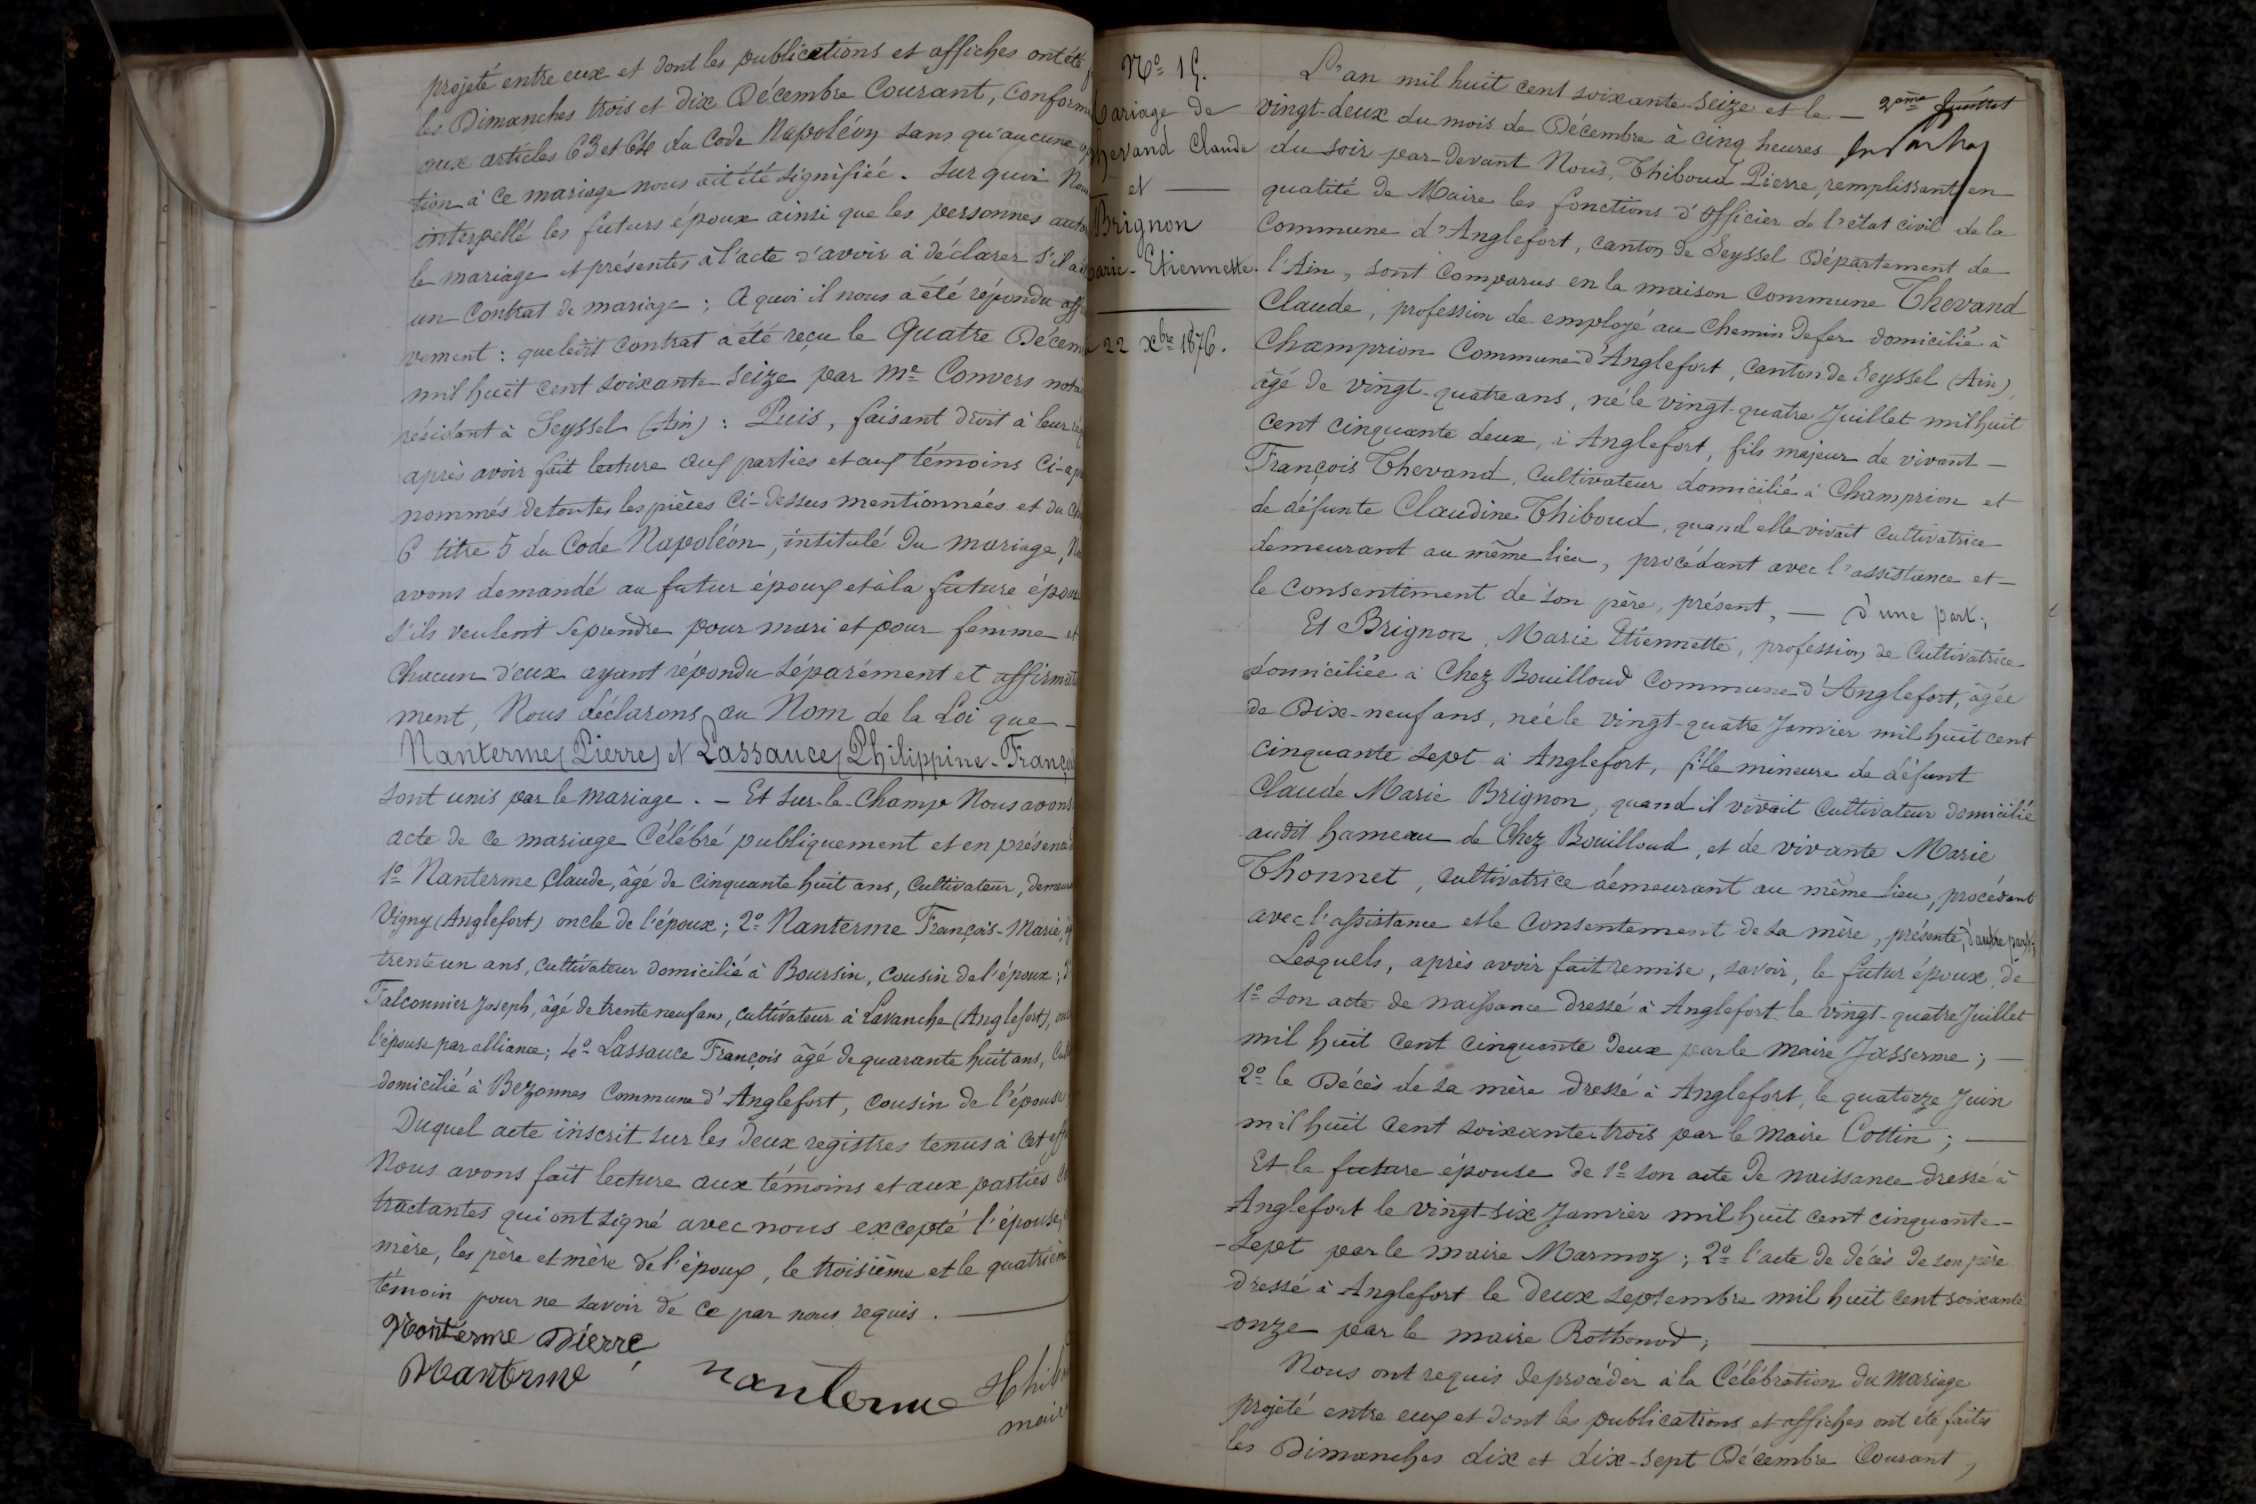 projeté entre eux et dont les publications et affiches ont été
les Dimanches trois et dix Décembre Courant, Conform
aux articles 63 et 64 du Code Napoléon sans qu'aucune
tion à ce mariage nous ait été signifiée. Sur quoi
interpellé les futurs époux ainsi que les personnes auto
le mariage et présentes à l'acte d'avoir à déclarer s'il a
un Contrat de mariage ; A quoi il nous a été répondu aff
vement : que ledit contrat a été reçu le Quatre Décem
mil huit cent soixante-Seize par Me Convers nota
résidant à Seyssel (Ain) : Puis, faisant droit à leur
après avoir fait lecture aux parties et aux témoins Ci-ap
nommés de toutes les pièces Ci-dessus mentionnées et du
6 titre 5 du Code Napoléon, intitulé Du mariage,
avons demandé au futur époux et à la future épou
s'ils veulent se prendre pour mari et pour femme et
Chacun d'eux ayant répondu séparément et affirmat
ment, Nous déclarons au Nom de la Loi que -
Nanterme Pierre et Lassauce Philippine-Franç
sont unis par le mariage. - Et sur-le-champ Nous avons
acte de ce mariage Célébré publiquement et en présence
1º Nanterme Claude, âgé de cinquante huit ans, Cultivateur, demeu
Vigny (Anglefort) oncle de l'époux ; 2º Nanterme François-Marie,
trente un ans, cultivateur domicilié à Boursin, cousin de l'époux ;
Falconnier Joseph, âgé de trente neuf ans, cultivateur à Lavanche (Anglefort),
l'épouse par alliance ; 4º Lassauce François âgé de quarante huit ans,
domicilié à Bezonnes Commune d'Anglefort, cousin de l'épouse
Duquel acte inscrit sur les deux registres tenus à cet eff
Nous avons fait lecture aux témoins et aux parties
tractantes qui ont signé avec nous excepté l'épouse,
mère, les père et mère de l'époux, le troisième et le quatrièm
témoin pour ne savoir de ce par nous requis.
Nanterme Pierre
Nanterme
nanterme
Thib
maire
Nº 15.
Mariage de
Thevand Claude
et
Brignon
Marie-Etiennette.
22 Xbre 1876.
L'an mil huit cent soixante-seize et le -
2ème
vingt-deux du mois de Décembre à cinq heures
du soir par-devant Nous, Thiboud Pierre, remplissant en
qualité de Maire les fonctions d'Officier de l'état civil de la
Commune d'Anglefort, canton de Seyssel Département de
l'Ain, sont Comparus en la maison Commune Thevand
Claude, profession de employé au Chemin de fer domicilié à
Champrion Commune d'Anglefort, Canton de Seyssel (Ain),
âgé de vingt-quatre ans, né le vingt-quatre Juillet mil huit
cent cinquante deux, à Anglefort, fils majeur de vivant -
François Thevand, Cultivateur domicilié à Champrion et
de défunte Claudine Thiboud, quand elle vivait Cultivatrice
demeurant au même lieu, procédant avec l'assistance et -
le Consentement de son père, présent, - d'une part ;
Et Brignon, Marie Etiennette, profession de Cultivatrice
domiciliée à Chez Bouilloud Commune d'Anglefort, âgée
de Dix-neuf ans, née le vingt-quatre Janvier mil huit cent
cinquante sept à Anglefort, fille mineure de défunt
Claude Marie Brignon, quand il vivait Cultivateur domicilié
audit hameau de Chez Bouilloud, et de vivante Marie
Thonnet, cultivatrice demeurant au même lieu, procédant
avec l'assistance et le consentement de sa mère, présente, d'autre part ;
Lesquels, après avoir fait remise, savoir, le futur époux, de
1º son acte de naissance dressé à Anglefort le vingt-quatre Juillet
mil huit cent cinquante deux par le Maire Jasserme ; -
2º le Décès de sa mère dressé à Anglefort, le quatorze Juin
mil huit cent soixante-trois par le Maire Cottin ; -
Et la future épouse de 1º son acte de naissance dressé à
Anglefort le vingt-six Janvier mil huit cent cinquante-
-sept par le maire Marmoz ; 2º l'acte de décès de son père
dressé à Anglefort le deux septembre mil huit cent soixante
-onze par le maire Rothonod ;
Nous ont requis de procéder à la Célébration du mariage
projeté entre eux et dont les publications et affiches ont été faites
les Dimanches dix et dix-sept Décembre Courant,